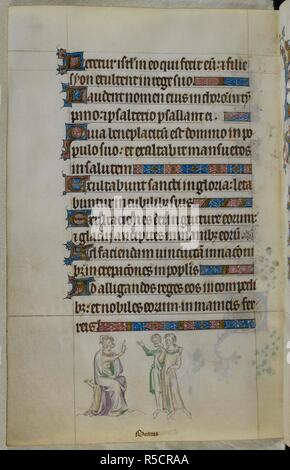 Letetur isr̄l in eo qui fecit eū: ⁊ filie
syon exultent in rege suo
Laudent nomen eius in choro: in tym
pano ⁊ psalterio psallant ei
Quia beneplacitū est domino in po
pulo suo: et exaltabit mansuetos
in salutem
Exultabunt sancti in gloria: leta
buntur in cubilibȝ suis
Exaltaciones dei in gutture eorum:
⁊ gladii ancipites in manibȝ eorū
Ad faciendam vindictā in nacioni
bȝ: increpaciones in populis
Ad alligandos reges eos in compedi
bȝ: et nobiles eorum in manicis fer
reis
alamy
Image ID: R5CRAA
www.alamy.com